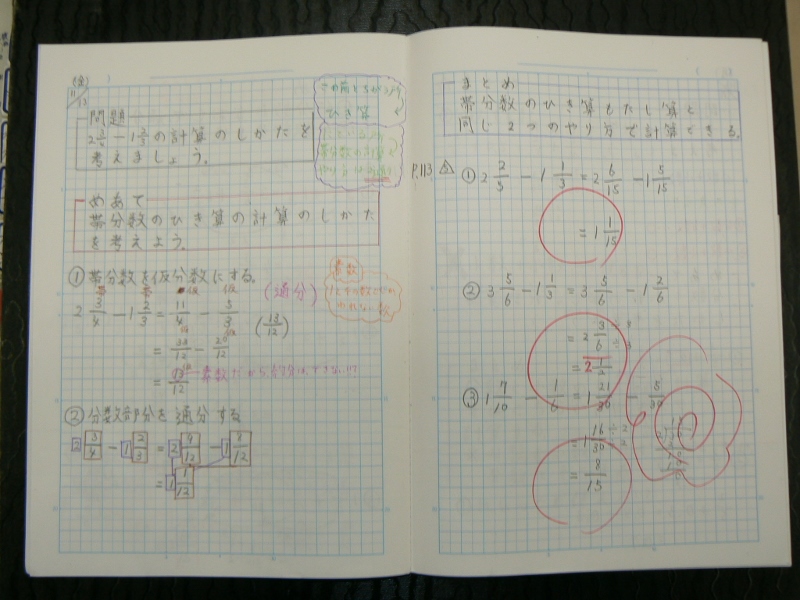 (金)
11/13
問題
2 3/4 - 1 2/3 の計算のしかたを
考えましょう。
ひき算
めあて
帯分数のひき算の計算のしかた
を考えよう。
① 帯分数を仮分数にする。
(通分)
素数
2 3/4 - 1 2/3 = 11/4 - 5/3
(13/12)
= 33/12 - 20/12
= 13/12
② 分数部分を通分する
2 3/4 - 1 2/3 = 2 9/12 - 1 8/12
= 1 1/12
まとめ
帯分数のひき算もたし算と
同じ2つのやり方で計算できる。
P.113
① 2 2/5 - 1 1/3 = 2 6/15 - 1 5/15
= 1 1/15
② 3 5/6 - 1 1/3 = 3 5/6 - 1 2/6
= 2 3/6
= 2 1/2
③ 1 7/10 - 1/6 = 1 21/30 - 5/30
= 1 16/30 ÷2
= 8/15